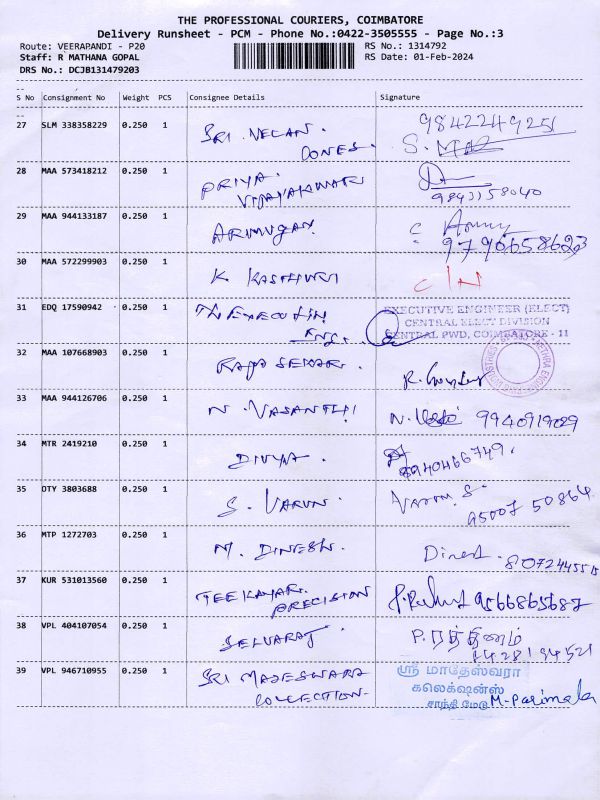 THE PROFESSIONAL COURIERS, COIMBATORE
Delivery Runsheet - PCM - Phone No.:0422-3505555 - Page No.:3
Route: VEERAPANDI - P20
RS No.: 1314792
Staff: R MATHANA GOPAL
RS Date: 01-Feb-2024
DRS No.: DCJB131479203
S No Consignment No Weight PCS Consignee Details Signature
27 SLM 338358229 0.250 1 SRI VELAN. 9842249251
28 MAA 573418212 0.250 1 PRIYA.
VIJAYAKUMAR 9843158040
29 MAA 944133187 0.250 1 ARUMUGAM
9790658623
30 MAA 572299903 0.250 1 K KASTHURI
31 EDQ 17590942 0.250 1 THE EXECUTIN EXECUTIVE ENGINEER (ELECT)
ENG. CENTRAL ELECT DIVISION
CENTRAL PWD, COIMBATORE - 11
32 MAA 107668903 0.250 1 RAJA SEKAR.
33 MAA 944126706 0.250 1 N. VASANTHI 9940919029
34 MTR 2419210 0.250 1 DIVYA. 8940466749.
35 DTY 3803688 0.250 1 S. VARUN. Varun. S.
95007 50864
36 MTP 1272703 0.250 1 M. DINESH. Dinesh.
8072445515
37 KUR 531013560 0.250 1 TEEKAYAR. 9566865687
PRECISION
38 VPL 404107054 0.250 1 SELVARAJ P. ரத்தினம்
39 VPL 946710955 0.250 1 SRI MADESWARA ஸ்ரீ மாதேஸ்வரா
COLLECTION- கலெக்ஷன்ஸ்
சாந்தி மேடு M-Parimala